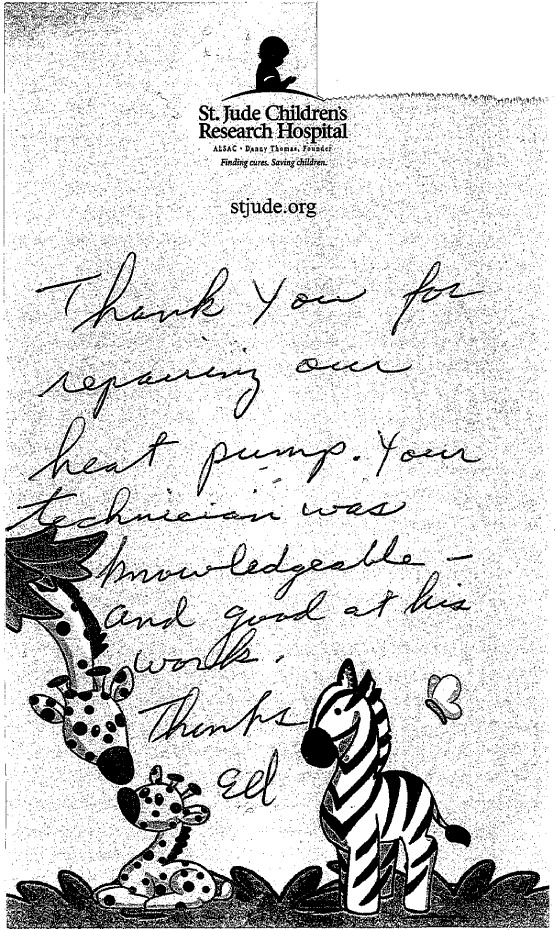 St. Jude Children's
Research Hospital
ALSAC • Danny Thomas, Founder
Finding cures. Saving children.
stjude.org
Thank You for
repairing our
heat pump. Your
technician was
knowledgeable –
and good at his
work.
Thanks
Ed